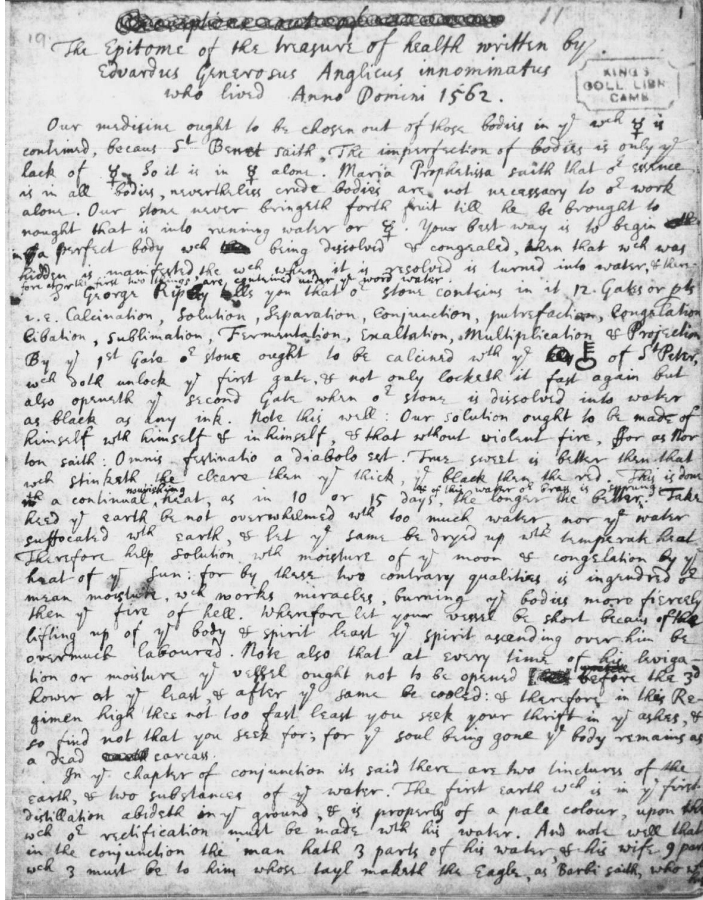 19. 11 1
The Epitome of the treasure of health written by
Edwardus Generosus Anglicus innominatus
who lived Anno Domini 1562.
KING'S
COLL LIBR
CAMB
Our medicine ought to be chosen out of those bodies in yͤ wch ☿ is
contained, becaus St Benet saith, The imperfection of bodies is only yͤ
lack of ☿. So it is in ☿ alone. Maria Prophetissa saith that oʳ essence
is in all bodies, nevertheless crude bodies are not necessary to oʳ work
alone. Our stone never bringeth forth fruit till he be brought to
nought that is into running water or ☿. Your best way is to begin
in a perfect body wch being dissolved & congealed, then that wch was
hidden is manifested, the wch when it is resolved is turned into water, & there-
fore at first two things are contained under yͤ word water.
George Ripley tells you that oʳ stone contains in it 12. Gates or pts
v.z. Calcination, Solution, Separation, Conjunction, putrefaction, Congelation
Cibation, Sublimation, Fermentation, Exaltation, Multiplication & Projection
By yͤ 1st Gate oʳ stone ought to be calcined wth yͤ of St Peter,
wch doth unlock yͤ first gate, & not only locketh it fast again but
also openeth yͤ second Gate when oʳ stone is dissolved into water
as black as any ink. Note this well: Our solution ought to be made of
himself wth himself & in himself, & that wthout violent fire, ffor as Nor
ton saith: Omnis festinatio a diabolo est. True sweet is better then that
wch stinketh the cleare then yͤ thick, yͤ black then the red. This is done
nourishing of this water of brass is
a continual heat, as in 10 or 15 days, the longer the better. Take
heed yͤ earth be not overwhelmed wth too much water, nor yͤ water
suffocated wth earth, & let yͤ same be dryed up wth temperate heat.
Therefore help solution wth moisture of yͤ moon & congelation by yͤ
heat of yͤ Sun: for by these two contrary qualities is ingendred oʳ
mean moisture, wch works miracles, burning yͤ bodies more fiercely
then yͤ fire of hell. Wherefore let your vessel be short becaus of the
lifting up of yͤ body & spirit least yͤ spirit ascending over him be
overmuch laboured. Note also that at every time of his leviga-
tion or moisture yͤ vessel ought not to be opened before the 3d
hower at yͤ least, & after yͤ same be cooled: & therefore in this Re-
gimen high thee not too fast least you seek your thrift in yͤ ashes, &
so find not that you seek for; for yͤ soul being gone yͤ body remains as
a dead carcass.
In yͤ chapter of conjunction its said there are two tinctures of the
earth, & two substances of yͤ water. The first earth wch is in yͤ first
distillation abideth in yͤ ground, & is properly of a pale colour, upon the
wch oʳ rectification must be made wth his water. And note well that
in the conjunction the man hath 3 parts of his water, & his wife 9 par
wch 3 must be to him whose tayl maketh the Eagle, as Barbi saith, who